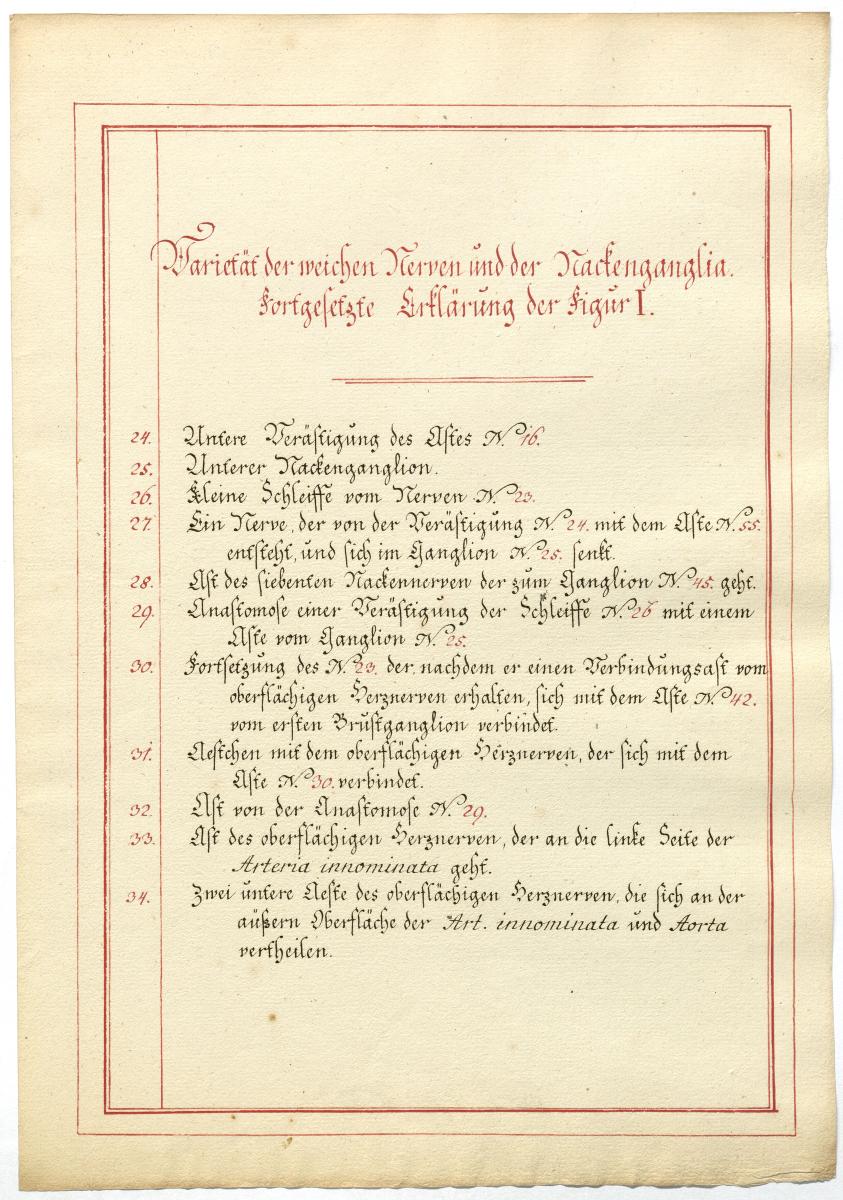 Varietät der weichen Nerven und der Nackenganglia.
Fortgesetzte Erklärung der Figur I.
24. Untere Verästigung des Astes N. 16.
25. Unterer Nackenganglion.
26. Kleine Schleiffe vom Nerven N. 23.
27. Ein Nerve, der von der Verästigung N. 24. mit dem Aste N. 55.
entsteht, und sich im Ganglion N. 25. senkt.
28. Ast des siebenten Nackennerven der zum Ganglion N. 45. geht.
29. Anastomose einer Verästigung der Schleiffe N. 26 mit einem
Aste vom Ganglion N. 25.
30. Fortsetzung des N. 23. der, nachdem er einen Verbindungsast vom
oberflächigen Herznerven erhalten, sich mit dem Aste N. 42.
vom ersten Brustganglion verbindet.
31. Aestchen mit dem oberflächigen Herznerven, der sich mit dem
Aste N. 30. verbindet.
32. Ast von der Anastomose N. 29.
33. Ast des oberflächigen Herznerven, der an die linke Seite der
Arteria innominata geht.
34. Zwei untere Aeste des oberflächigen Herznerven, die sich an der
äußern Oberfläche der Art. innominata und Aorta
vertheilen.